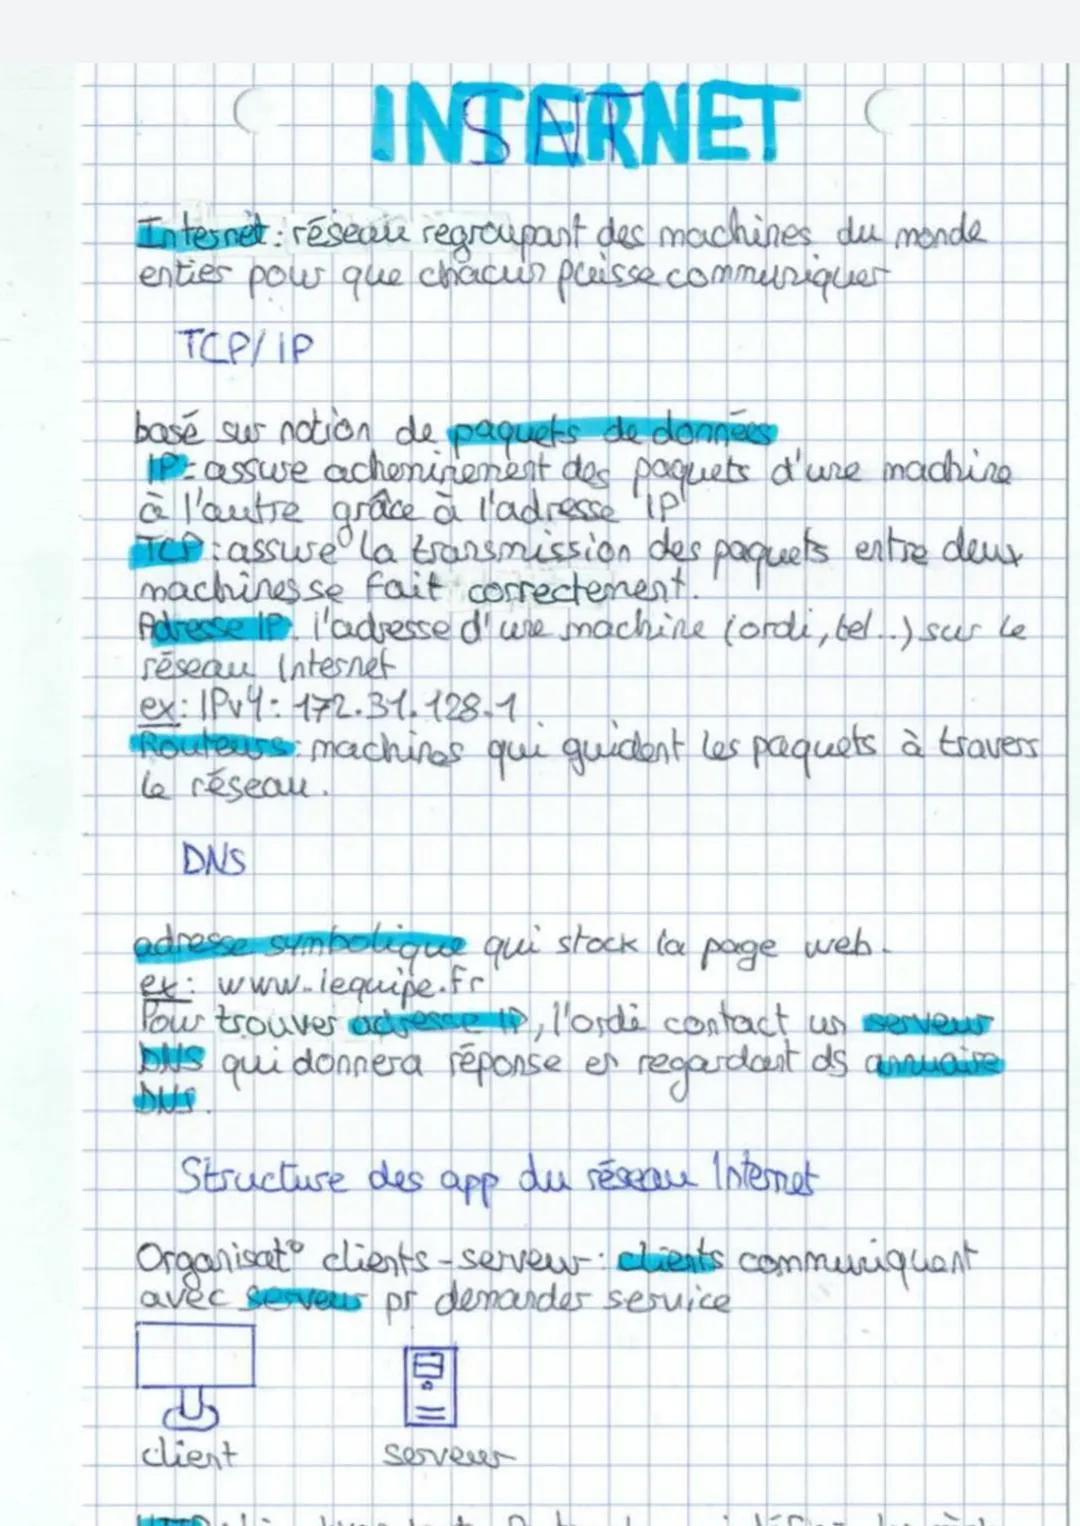 INTERNET
SNT
Internet : réseau regroupant des machines du monde
entier pour que chacun puisse communiquer
TCP/IP
basé sur notion de paquets de données
IP : assure acheminement des paquets d'une machine
à l'autre grâce à l'adresse IP
TCP : assure la transmission des paquets entre deux
machines se fait correctement.
Adresse IP : l'adresse d'une machine (ordi, tel..) sur le
réseau Internet
ex : IPv4 : 172.31.128.1
Routeurs : machines qui guident les paquets à travers
le réseau.
DNS
adresse symbolique qui stock la page web.
ex : www.lequipe.fr
Pour trouver adresse IP, l'ordi contact un serveur
DNS qui donnera réponse en regardant ds annuaire
DNS.
Structure des app du réseau Internet
Organisat° clients-serveur : clients communiquent
avec serveur pr demander service
client serveur